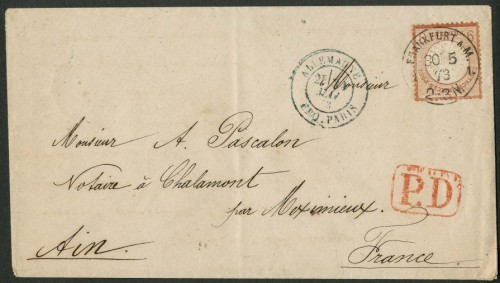 FRANKFURT A.M.
30 5
73
2-3N.
ALLEMAGNE
MAI
ERQ. PARIS
Monsieur
Monsieur A. Pascalon
Notaire à Chalamont
par Meximieux.
P.D
Ain.
France.